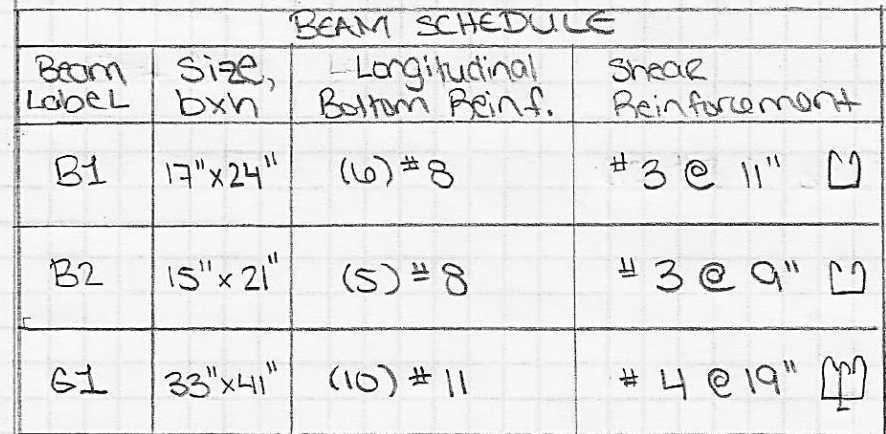 BEAM SCHEDULE
Beam Label | Size, bxh | Longitudinal Bottom Reinf. | Shear Reinforcement
B1 | 17"x24" | (6) #8 | #3 @ 11"
B2 | 15"x21" | (5) #8 | #3 @ 9"
G1 | 33"x41" | (10) #11 | #4 @ 19"